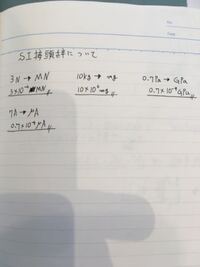 SI接頭辞について
3N → MN 10kg → mg 0.7Pa → GPa
3×10⁻⁶MN 10×10⁶mg 0.7×10⁻⁹GPa
7A → μA
0.7×10⁻⁶μA